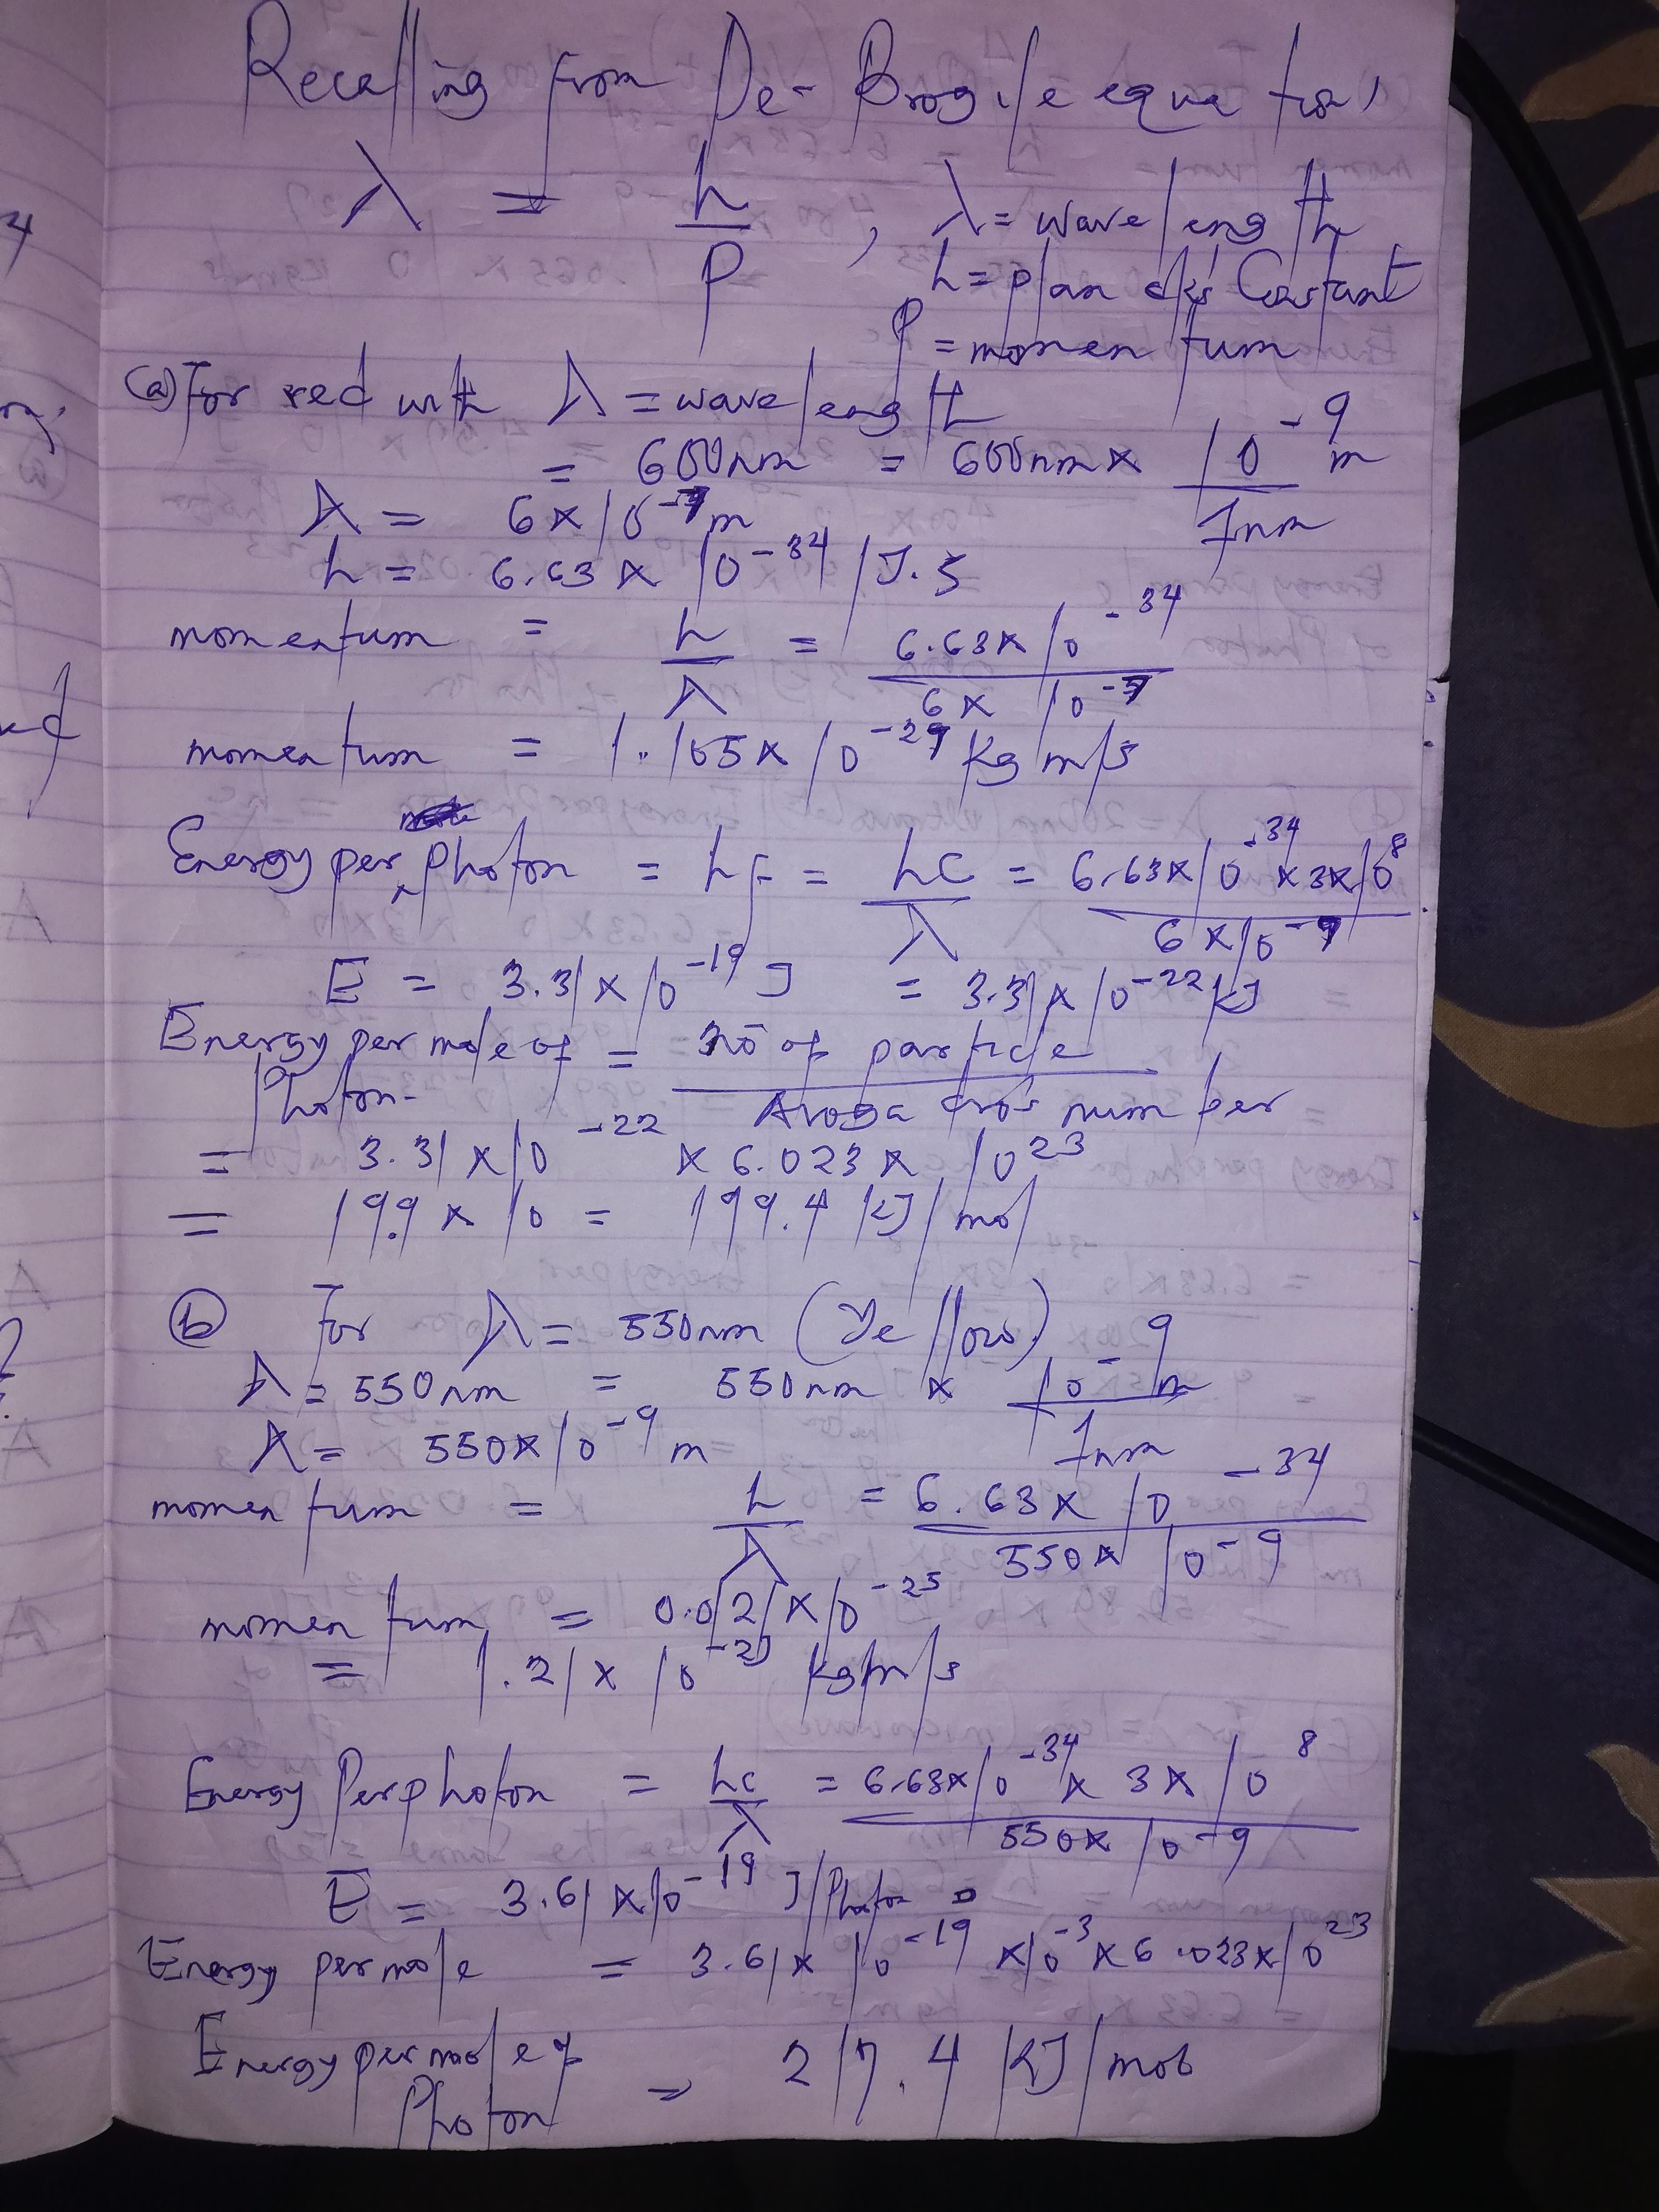 Recalling from De-Brogile equation,
λ = h/P , λ = wavelength
h = planck's Constant
P = momentum
(a) For red with λ = wavelength
= 600nm = 600nm x 10^-9 m / 1nm
λ = 6x10^-7 m
h = 6.63 x 10^-34 J.s
momentum = h/λ = 6.63x10^-34 / 6x10^-7
momentum = 1.105x10^-27 kg m/s
Energy per photon = hf = hc/λ = 6.63x10^-34 x 3x10^8 / 6x10^-7
E = 3.31x10^-19 J = 3.31x10^-22 kJ
Energy per mole of photon = no of particle / Avogadro's number
= 3.31x10^-22 x 6.023x10^23
= 19.9 x 10 = 199.4 kJ/mol
(b) For λ = 550nm (Yellow)
λ = 550nm = 550nm x 10^-9 m / 1nm
λ = 550x10^-9 m
momentum = h/λ = 6.63x10^-34 / 550x10^-9
momentum = 0.0121x10^-25
= 1.21x10^-27 kgm/s
Energy Per photon = hc/λ = 6.63x10^-34 x 3x10^8 / 550x10^-9
E = 3.61x10^-19 J/Photon
Energy per mole = 3.61x10^-19 x10^-3 x 6.023x10^23
Energy per mole of Photon = 217.4 kJ/mol